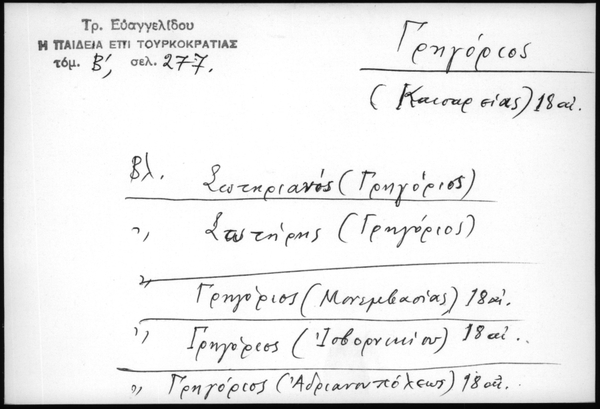 Τρ. Εὐαγγελίδου
Η ΠΑΙΔΕΙΑ ΕΠΙ ΤΟΥΡΚΟΚΡΑΤΙΑΣ
τόμ. Β', σελ. 277.
Γρηγόριος
(Καισαρείας) 18 αἰ.
Βλ. Σωτηριανός (Γρηγόριος)
" Σωτήρης (Γρηγόριος)
" Γρηγόριος (Μονεμβασίας) 18 αἰ.
" Γρηγόριος (Ἰσβορνικίου) 18 αἰ.
" Γρηγόριος (Ἀδριανουπόλεως) 18 αἰ.